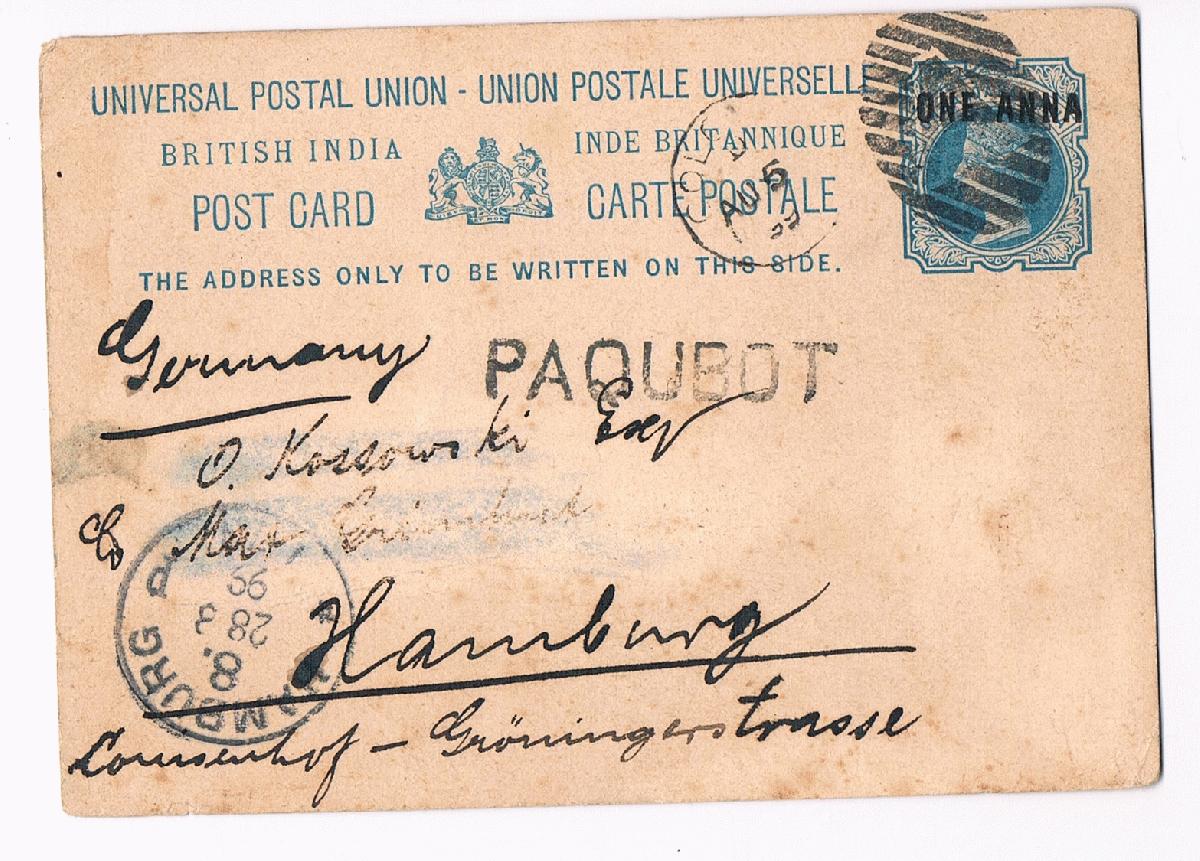 UNIVERSAL POSTAL UNION - UNION POSTALE UNIVERSELLE
ONE ANNA
BRITISH INDIA INDE BRITANNIQUE
POST CARD CARTE POSTALE
AU 5
THE ADDRESS ONLY TO BE WRITTEN ON THIS SIDE.
Germany
PAQUBOT
O. Kossowski Esq
C/o Max
Hamburg
HAMBURG
28 8
99
Gröningerstrasse